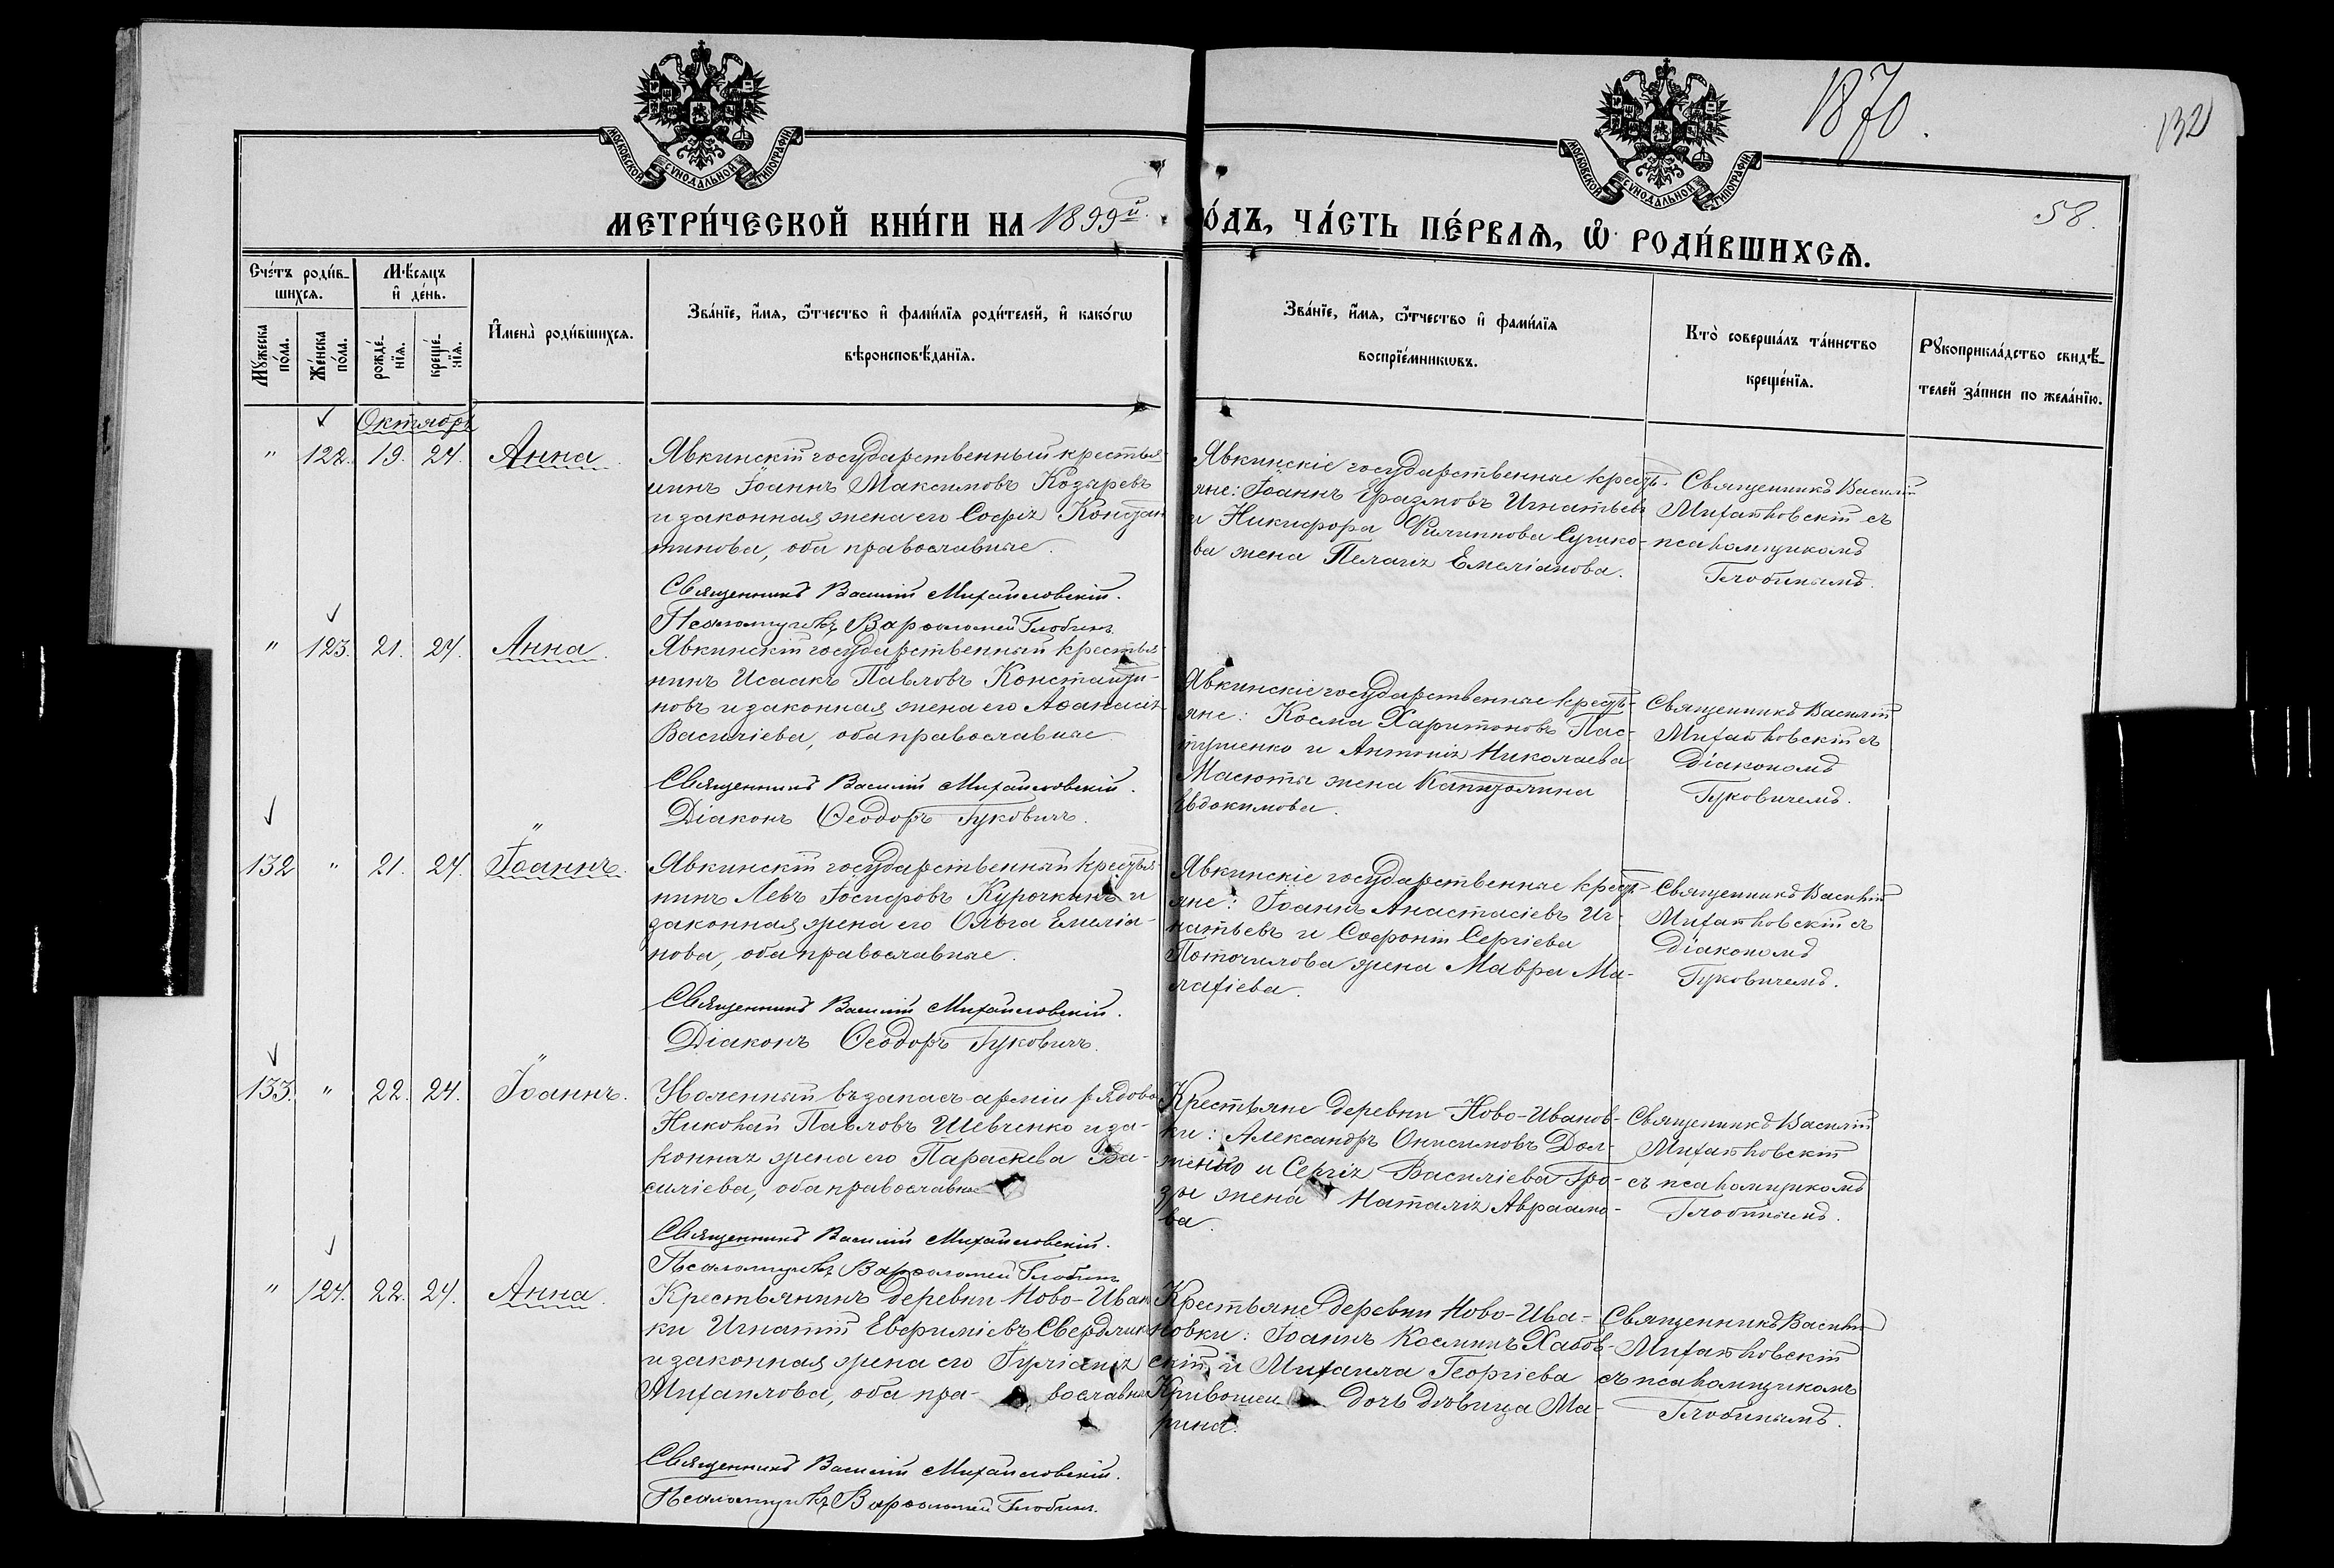 1870.
132
58.
МОСКОВСКОЙ СѴНОДАЛЬНОЙ ТИПОГРАФІИ
МОСКОВСКОЙ СѴНОДАЛЬНОЙ ТИПОГРАФІИ
МЕТРИ́ЧЕСКОЙ КНИ́ГИ НА 1899й О́ДЪ, ЧА́СТЬ ПЕ́РВАѦ, Ѡ҆ РОДИ́ВШИХСѦ.
Сче́тъ роди́в-
шихсѧ.
Мꙋ́жеска
по́ла.
Же́нска
по́ла.
Мѣ́сѧцъ
и҆ де́нь.
рожде́-
нїѧ.
креще́-
нїѧ.
И҆мена̀ роди́вшихсѧ.
Зва́нїе, и҆́мѧ, ѻ҆́тчество и҆ фами́лїѧ роди́телей, и҆ како́гѡ
вѣроисповѣ́данїѧ.
Зва́нїе, и҆́мѧ, ѻ҆́тчество и҆ фами́лїѧ
воспрїе́мникѡвъ.
Кто̀ соверша́лъ та́инство
креще́нїѧ.
Рꙋкоприкла́дство свидѣ́-
телей за́писи по жела́нїю.
Октябрь
" 122. 19. 24. Анна.
Явкинскій государственный крестья-
нинъ Іоаннъ Максимовъ Козыревъ
и законная жена его Софія Констан
тинова, оба православные.
Священникъ Василій Михайловскій.
Псаломщикъ Варѳоломей Глобинъ
Явкинскіе государственные кресть-
яне: Іоаннъ Еразмовъ Игнатьевъ
и Никифора Филиппова Сушко-
ва жена Пелагія Емеліанова.
Священникъ Василій
Михайловскій съ
псаломщикомъ
Глобинымъ.
" 123. 21. 24. Анна.
Явкинскій государственный крестья-
нинъ Исаакъ Павловъ Константи-
новъ и законная жена его Аѳанасія
Василіева, оба православные
Священникъ Василій Михайловскій.
Діаконъ Ѳеодоръ Гуковичъ.
Явкинскіе государственные кресть-
яне: Косма Харитоновъ Пас-
тушенко и Антонія Николаева
Масюты жена Капитолина
Евдокимова.
Священникъ Василій
Михайловскій съ
Діакономъ
Гуковичемъ.
132 " 21. 24. Іоаннъ.
Явкинскій государственный крестья-
нинъ Левъ Іосифовъ Курочкинъ и
законная жена его Ольга Емеліа-
нова, оба православные.
Священникъ Василій Михайловскій.
Діаконъ Ѳеодоръ Гуковичъ.
Явкинскіе государственные кресть-
яне: Іоаннъ Анастасіевъ Иг-
натьевъ и Софронія Сергіева
Поточилова жена Мавра Ма-
лахіева.
Священникъ Василій
Михайловскій съ
Діакономъ
Гуковичемъ.
133. " 22. 24. Іоаннъ.
Уволенный въ запасъ арміи рядово
Николай Павловъ Шевченко и за-
конная жена его Параскева Ва-
силіева, оба православные
Священникъ Василій Михайловскій.
Псаломщикъ Варѳоломей Глобинъ
Крестьяне деревни Ново-Иванов-
ки: Александръ Онисимовъ Дол-
женко и Сергія Василіева Гро-
зы жена Наталія Авраамо-
ва.
Священникъ Василій
Михайловскій
съ псаломщикомъ
Глобинымъ.
" 124. 22. 24. Анна.
Крестьянинъ деревни Ново-Иван
ки Игнатій Евфиміевъ Свердлик
и законная жена его Іуліанія
Михаилова, оба пра- вославные
Священникъ Василій Михайловскій.
Псаломщикъ Варѳоломей Глобинъ.
Крестьяне деревни Ново-Ива-
новки: Іоаннъ Косминъ Хабов-
скій и Михаила Георгіева
Кривошеи дочь дѣвица Ма-
рина.
Священникъ Василій
Михайловскій
съ псаломщикомъ
Глобинымъ.